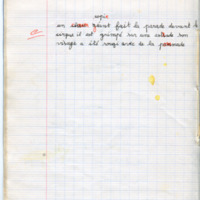 copie
un géant fait la parade devant le
cirque il est grimpé sur une estrade son
visage a été rougi
de la